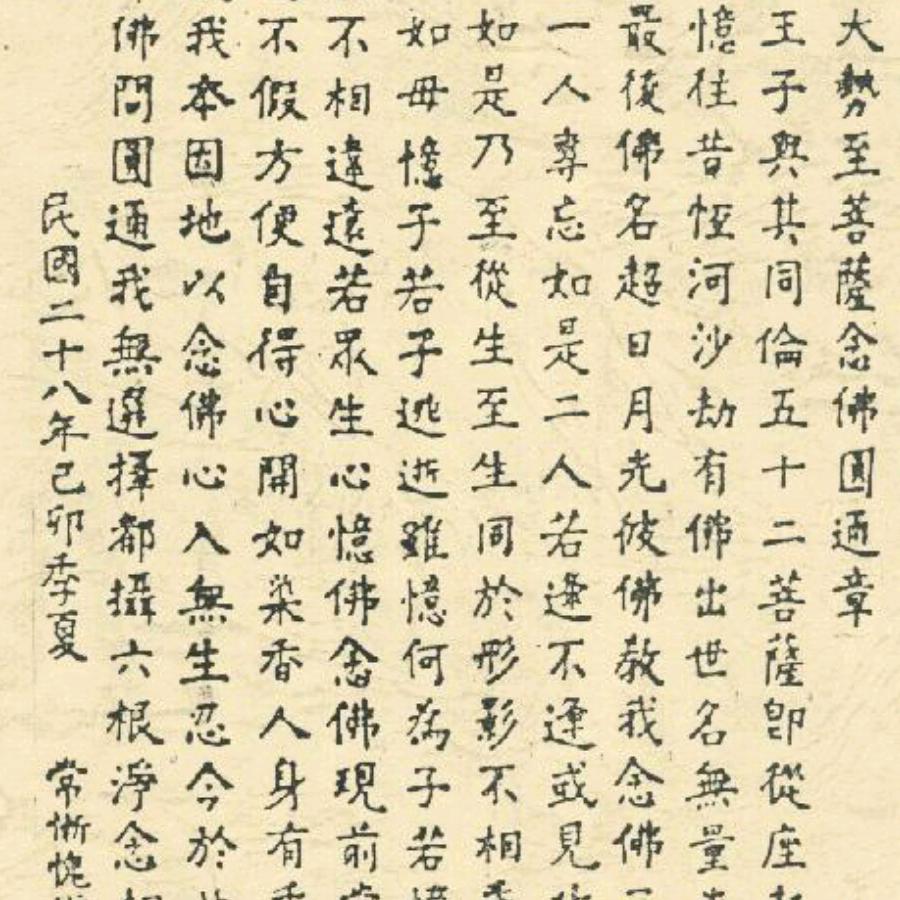 大勢至菩薩念佛圓通章
王子與其同倫五十二菩薩即從座
憶往昔恆河沙劫有佛出世名無量
最後佛名超日月光彼佛教我念佛
一人專忘如是二人若逢不逢或見
如是乃至從生至生同於形影不相
如母憶子若子逃逝雖憶何為子若憶
不相違遠若眾生心憶佛念佛現前
不假方便自得心開如染香人身有
我本因地以念佛心入無生忍今於
佛問圓通我無選擇都攝六根淨念
民國二十八年己卯季夏 常慚愧